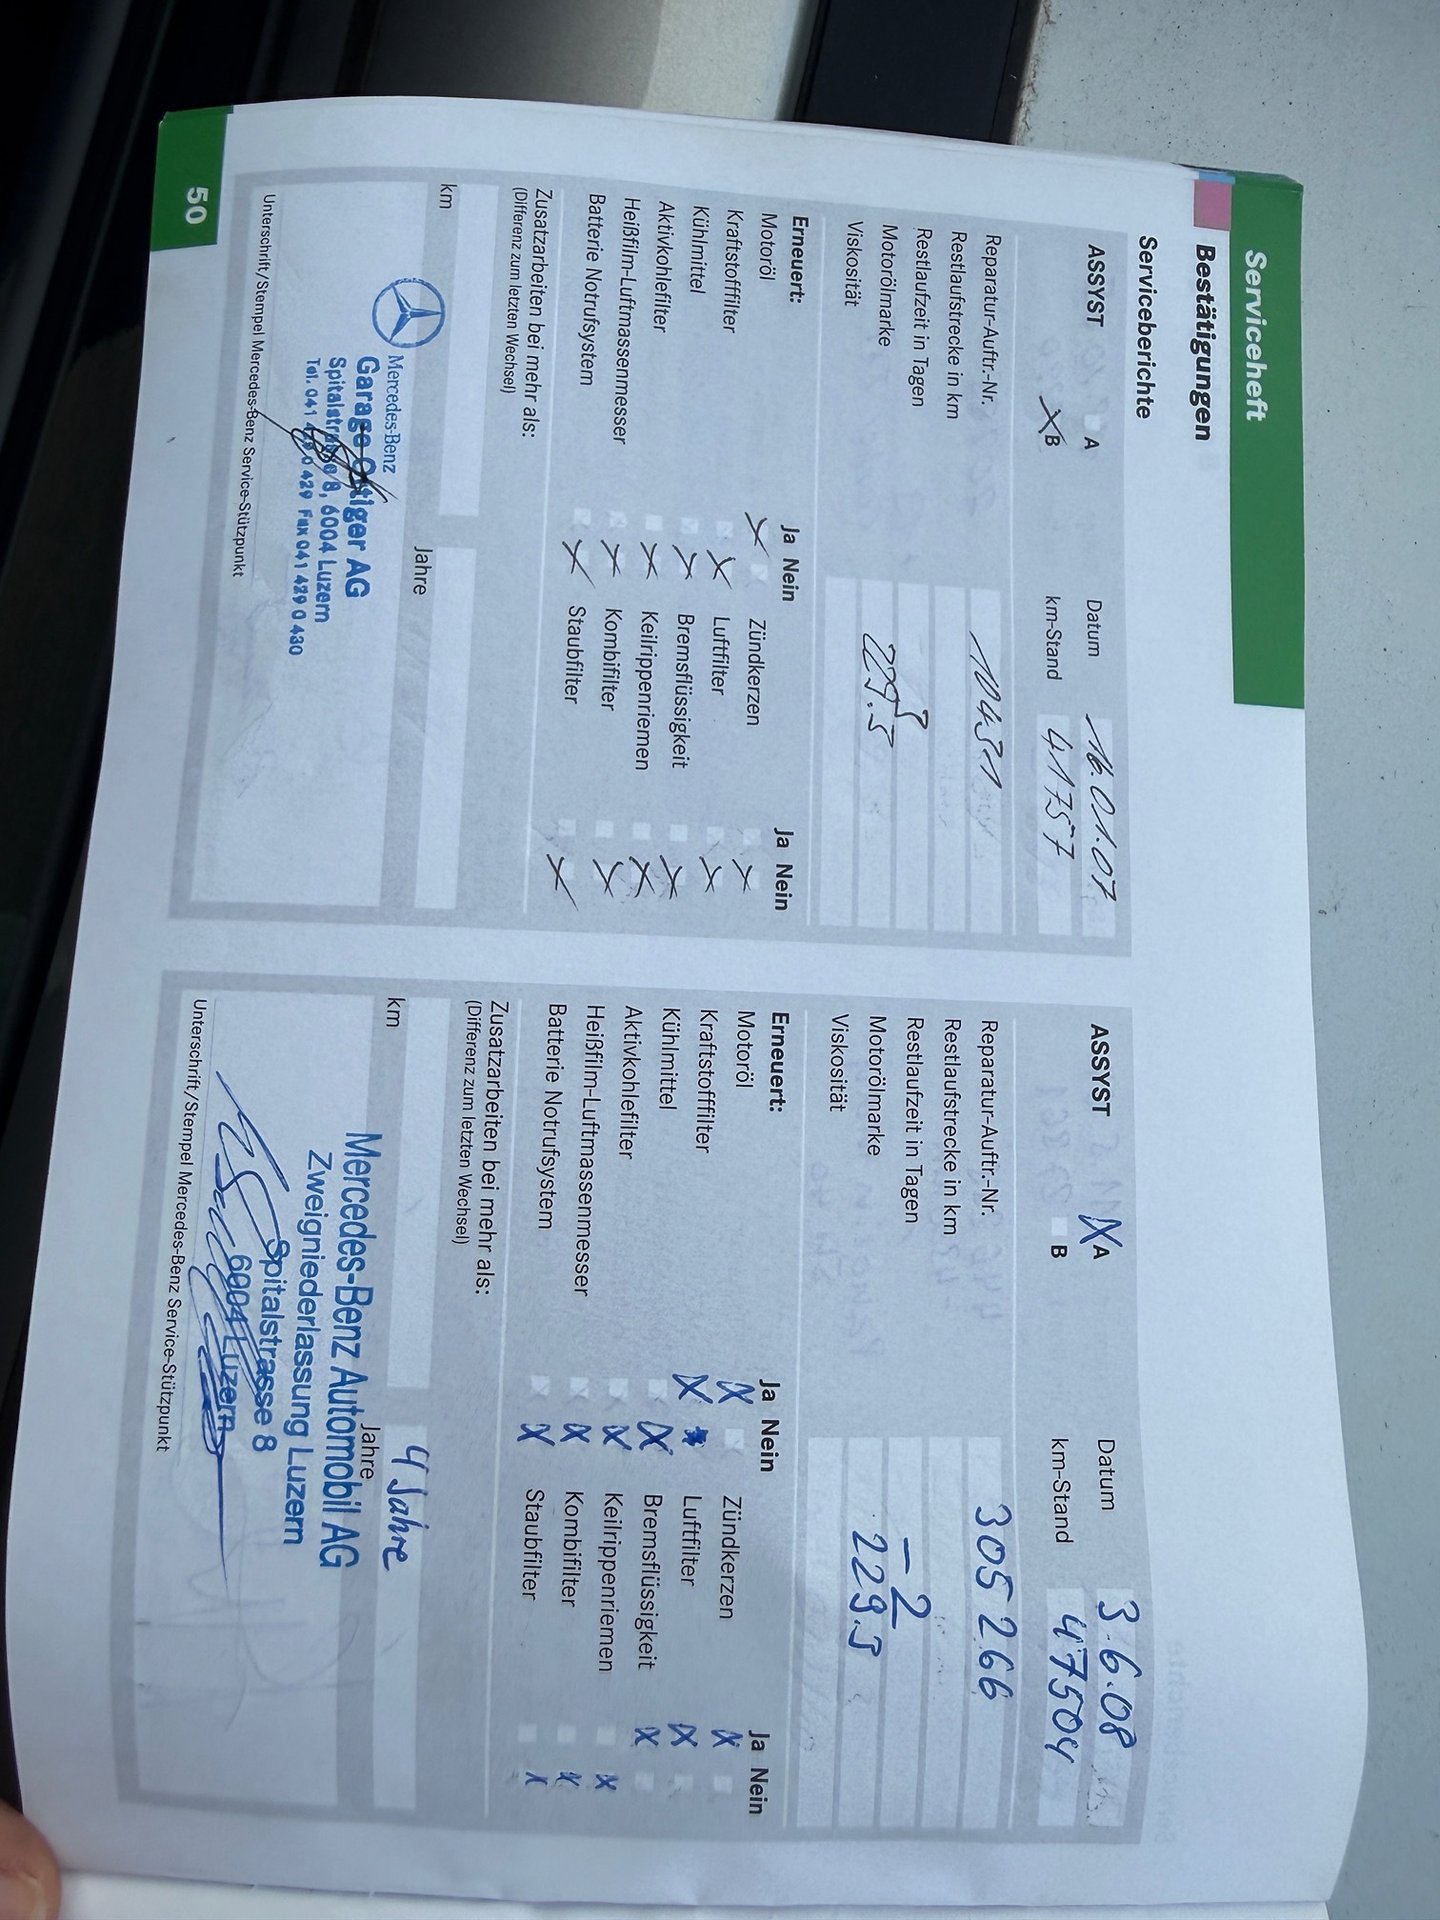 Serviceheft
Bestätigungen
Serviceberichte
ASSYST
A
X B
Datum 16.01.07
km-Stand 41757
Reparatur-Auftr.-Nr. 10431
Restlaufstrecke in km
Restlaufzeit in Tagen
Motorölmarke 229.5
Viskosität
Erneuert: Ja Nein Ja Nein
Motoröl X Zündkerzen X
Kraftstofffilter X Luftfilter X
Kühlmittel X Bremsflüssigkeit X
Aktivkohlefilter X Keilrippenriemen X
Heißfilm-Luftmassenmesser X Kombifilter X
Batterie Notrufsystem X Staubfilter X
Zusatzarbeiten bei mehr als:
(Differenz zum letzten Wechsel)
km Jahre
Mercedes-Benz
Garage Ottiger AG
Spitalstrasse 8, 6004 Luzern
Tel. 041 429 0 429 Fax 041 429 0 430
Unterschrift/Stempel Mercedes-Benz Service-Stützpunkt
50
ASSYST
X A
B
Datum 3.6.08
km-Stand 47504
Reparatur-Auftr.-Nr. 305 266
Restlaufstrecke in km
Restlaufzeit in Tagen -2
Motorölmarke 229.5
Viskosität
Erneuert: Ja Nein Ja Nein
Motoröl X Zündkerzen X
Kraftstofffilter X Luftfilter X
Kühlmittel X Bremsflüssigkeit X
Aktivkohlefilter X Keilrippenriemen X
Heißfilm-Luftmassenmesser X Kombifilter X
Batterie Notrufsystem X Staubfilter X
Zusatzarbeiten bei mehr als:
(Differenz zum letzten Wechsel)
km Jahre 4 Jahre
Mercedes-Benz Automobil AG
Zweigniederlassung Luzern
Spitalstrasse 8
6004 Luzern
Unterschrift/Stempel Mercedes-Benz Service-Stützpunkt